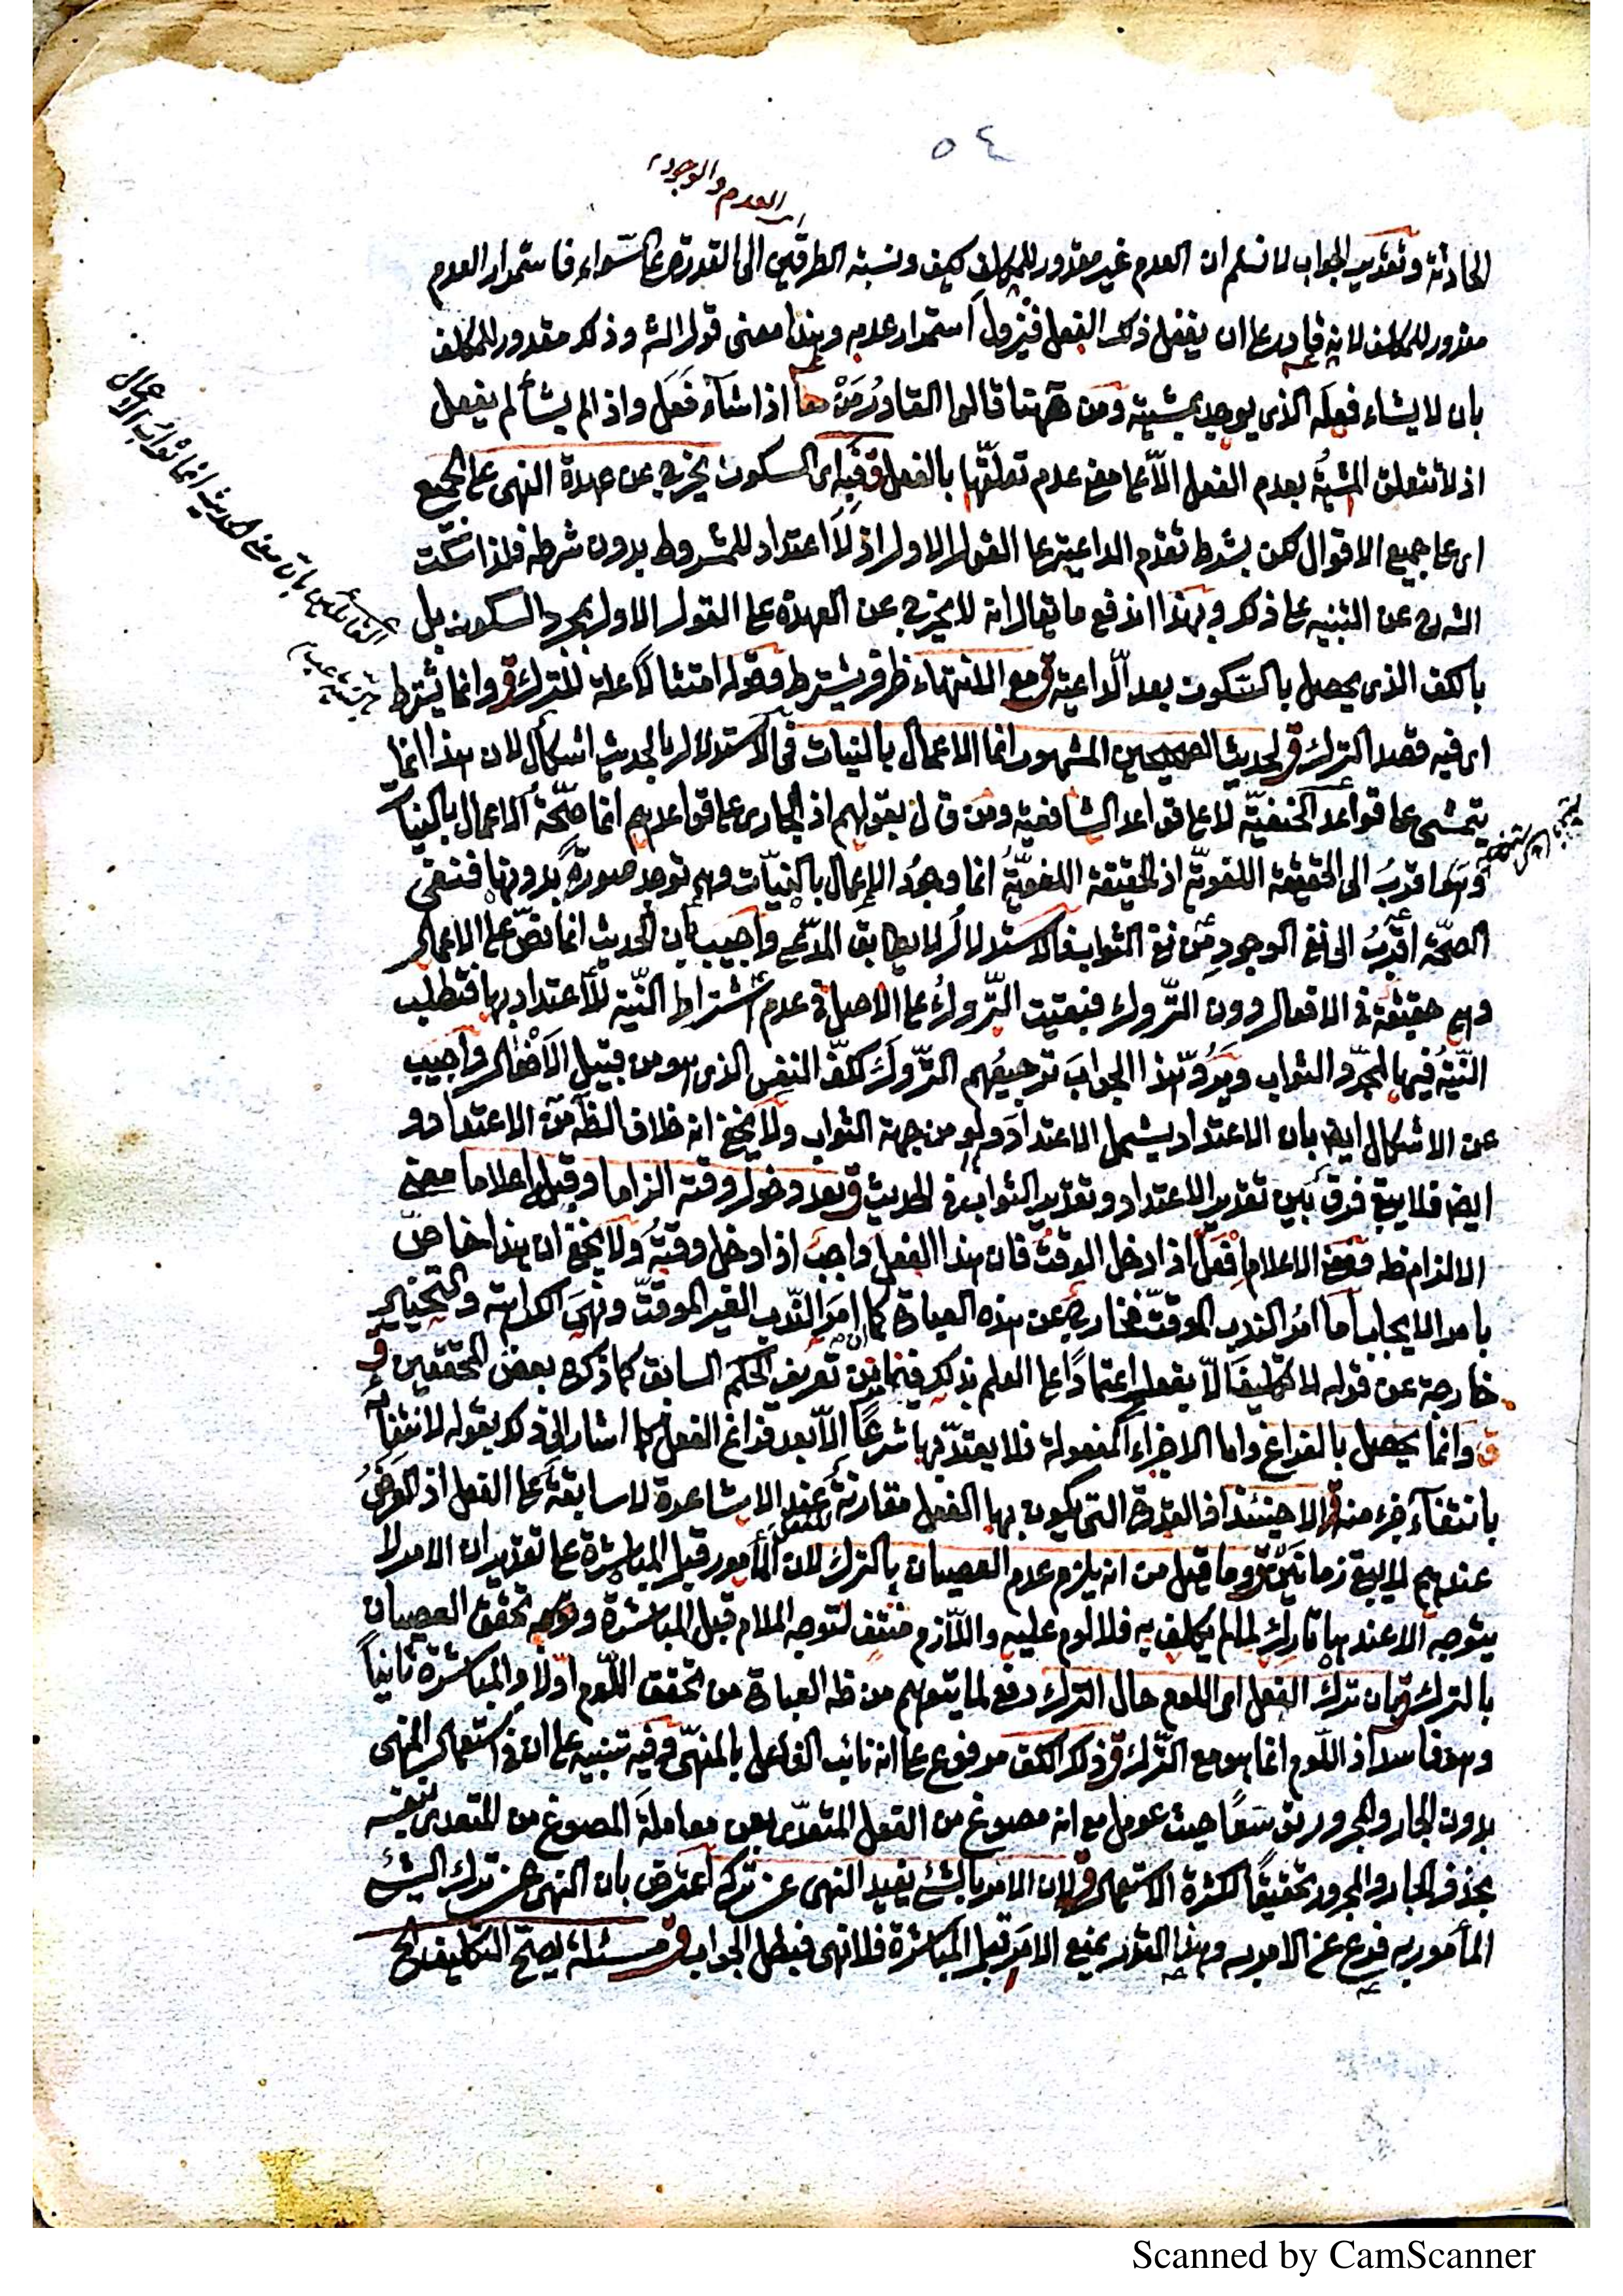 ٥٤
اى العدم والوجود
الحادثة وتقدير الجواب لا نسلم ان العدم غير مقدور للمكلف كيف ونسبة الطرفين الى القدرة على السواء فاستمرار العدم
مقدور للمكلف لانه قادر على ان يفعل ذلك الفعل فيزول استمرار عدمه وهذا معنى قول الش وذلك مقدور للمكلف
بان لا يشاء فعله الذى يوجد بمشيته ومن ههنا قالوا القادر من اذا شاء فعل واذا لم يشأ لم يفعل
اذ لا تتعلق المشية بعدم الفعل الا على معنى عدم تعلقها بالفعل ق اى السكوت يخرج عن عهدة النهى على الجميع
اى على جميع الاقوال لكن بشرط تقدم الداعية على القول الاول اذ لا اعتداد للمشروط بدون شرطه فلذا سكت
الشرح عن التنبيه على ذلك وبهذا اندفع ما يقال انه لا يخرج عن العهدة على القول الاول بمجرد السكوت بل
بالكف الذى يحصل بالسكوت بعد الداعية ق مع الانتهاء ظرف يشترط وقوله امتثالا علة للترك ق وانما يشترط
اى فيه قصد الترك ق لحديث الصحيحين المشهور انما الاعمال بالنيات فى الاستدلال بالحديث اشكال لان هذا انما
يتمشى على قواعد الحنفية لا على قواعد الشافعية ومن قال بقولهم اذ الجارى على قواعدهم انما صحة الاعمال بالنيات
وهذا اقرب الى الحقيقة اللغوية اذ الحقيقة اللغوية انما وجود الاعمال بالنيات وهى توجد صورة بدونها فنفى
الصحة اقرب الى نفى الوجود من نفى الثواب فالاستدلال لا يطابق المدعى واجيب بان الحديث انما نص على الاعمال
وهى حقيقة فى الافعال دون التروك فبقيت التروك على الاصل فى عدم اشتراط النية للاعتداد بها فتطلب
النية فيها لمجرد الثواب ويرد هذا الجواب ترجيعهم التروك لكف النفس الذى هو من قبيل الافعال واجيب
عن الاشكال ايضا بان الاعتداد يشمل الاعتداد ولو من جهة الثواب ولا يخفى انه خلاف الظ من الاعتداد و
ايضا فلا يبقى فرق بين تقدير الاعتداد وتقدير الثواب فى الحديث ق بعد دخول وقته الزاما وقبله اعلاما معنى
الالزام ظ ومعنى الاعلام افعل اذا دخل الوقت فان هذا الفعل واجب اذا دخل وقته ولا يخفى ان هذا خاص
بامر الايجاب اما امر الندب الموقت فخارج عن هذه العبارة كما ان امر الندب الغير الموقت ونهى الكراهة والتخيير
خارجة عن قوله لا تكليف الا بفعل اعتمادا على العلم بذلك من تعريف الحكم السابق كما ذكره بعض المحققين ق
ق وانما يحصل بالفراغ واما الاجزاء المفعولة فلا يعتد بها شرعا الا بعد فراغ الفعل كما اشار الى ذلك بقوله لانتفائه
بانتفاء جزء منه ق الا حينئذ اذ القدرة التى يكون بها الفعل مقارنة عند الاشاعرة لا سابقة على الفعل اذ العرض
عندهم لا يبقى زمانين ق وما قيل من انه يلزم عدم العصيان بالترك لان المأمور قبل المباشرة على تقدير ان الامر لا
يتوجه الا عندها تارك لما لم يكلف به فلا لوم عليه واللازم منتف لتوجه الملام قبل المباشرة وتحقق العصيان
بالترك ق بان ترك الفعل اى اللوم حال الترك دفع لما يتوهم من ظ العبارة من تحقق اللوم اولا والمباشرة ثانيا
وهو فاسد اذ اللوم انما هو مع الترك ق ذلك الكف مرفوع على انه نائب الفاعل بالمنهى ق فيه تنبيه على ان فى استعمال المنهى
بدون الجار والمجرور توسعا حيث عومل مع انه مصوغ من الفعل المتعدى بعن معاملة المصوغ من المتعدى بنفسه
بحذف الجار والمجرور تخفيفا لكثرة الاستعمال ق لان الامر بالشئ يفيد النهى عن تركه اعترض بان النهى عن ترك الشئ
المأمور به فرع عن الامر به وهذا القول يمنع الامر قبل المباشرة فلا نهى فبطل الجواب ق مسئلة يصح التكليف الخ
القائلين بان معنى الحديث انما ثواب الاعمال